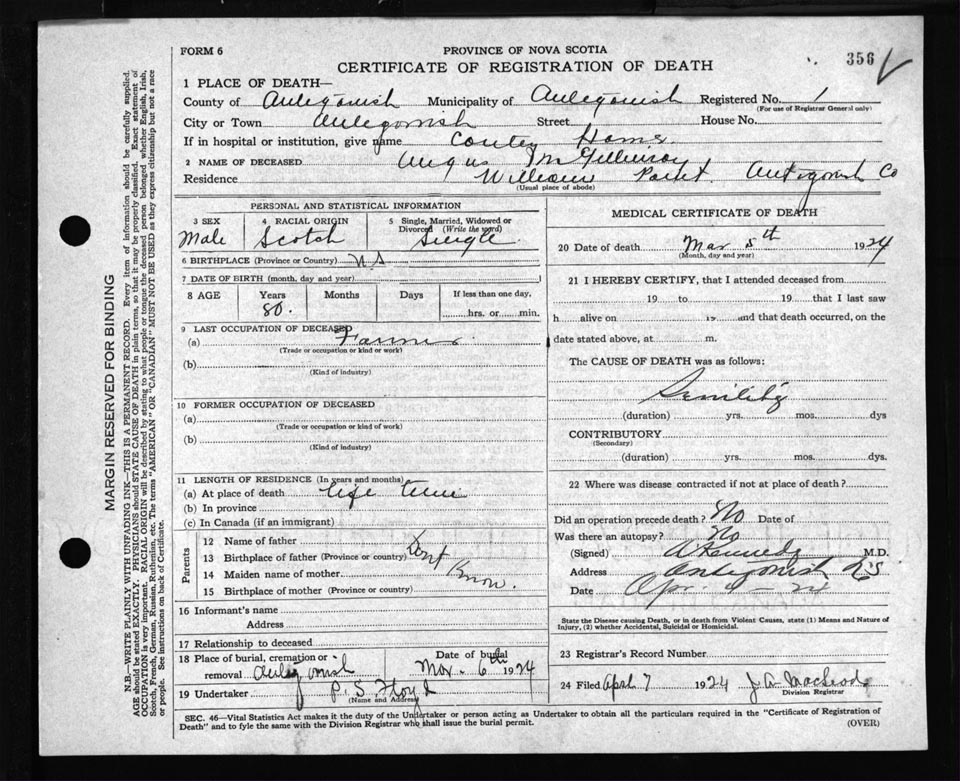 FORM 6
PROVINCE OF NOVA SCOTIA
CERTIFICATE OF REGISTRATION OF DEATH
356
1 PLACE OF DEATH—
County of Antigonish Municipality of Antigonish Registered No. 1
(For use of Registrar General only)
City or Town Antigonish Street House No.
If in hospital or institution, give name County Home
2 NAME OF DECEASED Angus McGillivray
Residence Williams Point Antigonish Co
(Usual place of abode)
MARGIN RESERVED FOR BINDING
N.B.—WRITE PLAINLY WITH UNFADING INK—THIS IS A PERMANENT RECORD. Every item of information should be carefully supplied.
AGE should be stated EXACTLY. PHYSICIANS should STATE CAUSE OF DEATH in plain terms, so that it may be properly classified. Exact statement of
OCCUPATION is very important. RACIAL ORIGIN will be described by stating to what people or tongue the deceased person belonged whether English, Irish,
Scotch, French, German, Russian, Ruthenian, etc. The terms "AMERICAN" or "CANADIAN" MUST NOT BE USED as they express citizenship but not a race
or people. See instructions on back of Certificate.
PERSONAL AND STATISTICAL INFORMATION
3 SEX
Male
4 RACIAL ORIGIN
Scotch
5 Single, Married, Widowed or
Divorced (Write the word)
Single
6 BIRTHPLACE (Province or Country) N.S
7 DATE OF BIRTH (month, day and year)
8 AGE Years Months Days If less than one day,
80. hrs. or min.
9 LAST OCCUPATION OF DECEASED
(a) Farmer
(Trade or occupation or kind or work)
(b)
(Kind of industry)
10 FORMER OCCUPATION OF DECEASED
(a)
(Trade or occupation or kind of work)
(b)
(Kind of industry)
11 LENGTH OF RESIDENCE (In years and months)
(a) At place of death life time
(b) In province
(c) In Canada (if an immigrant)
Parents
12 Name of father
13 Birthplace of father (Province or country) Dont
14 Maiden name of mother Know.
15 Birthplace of mother (Province or country)
16 Informant's name
Address
17 Relationship to deceased
18 Place of burial, cremation or Date of burial
removal Antigonish Mar. 6th 1924
19 Undertaker P. S. Floyd
(Name and Address)
MEDICAL CERTIFICATE OF DEATH
20 Date of death Mar 5th 1924
(Month, day and year)
21 I HEREBY CERTIFY, that I attended deceased from
19 to 19 that I last saw
h alive on 19 and that death occurred, on the
date stated above, at m.
The CAUSE OF DEATH was as follows:
Senility
(duration) yrs. mos. dys
CONTRIBUTORY
(Secondary)
(duration) yrs. mos. dys.
22 Where was disease contracted if not at place of death?
Did an operation precede death? No Date of
Was there an autopsy? No
(Signed) A Kennedy M.D.
Address Antigonish N S
Date Apr
State the Disease causing Death, or in death from Violent Causes, state (1) Means and Nature of
Injury, (2) whether Accidental, Suicidal or Homicidal.
23 Registrar's Record Number
24 Filed April 7 1924 J A Macleod
Division Registrar
SEC. 46—Vital Statistics Act makes it the duty of the Undertaker or person acting as Undertaker to obtain all the particulars required in the "Certificate of Registration of
Death" and to fyle the same with the Division Registrar who shall issue the burial permit.
(OVER)